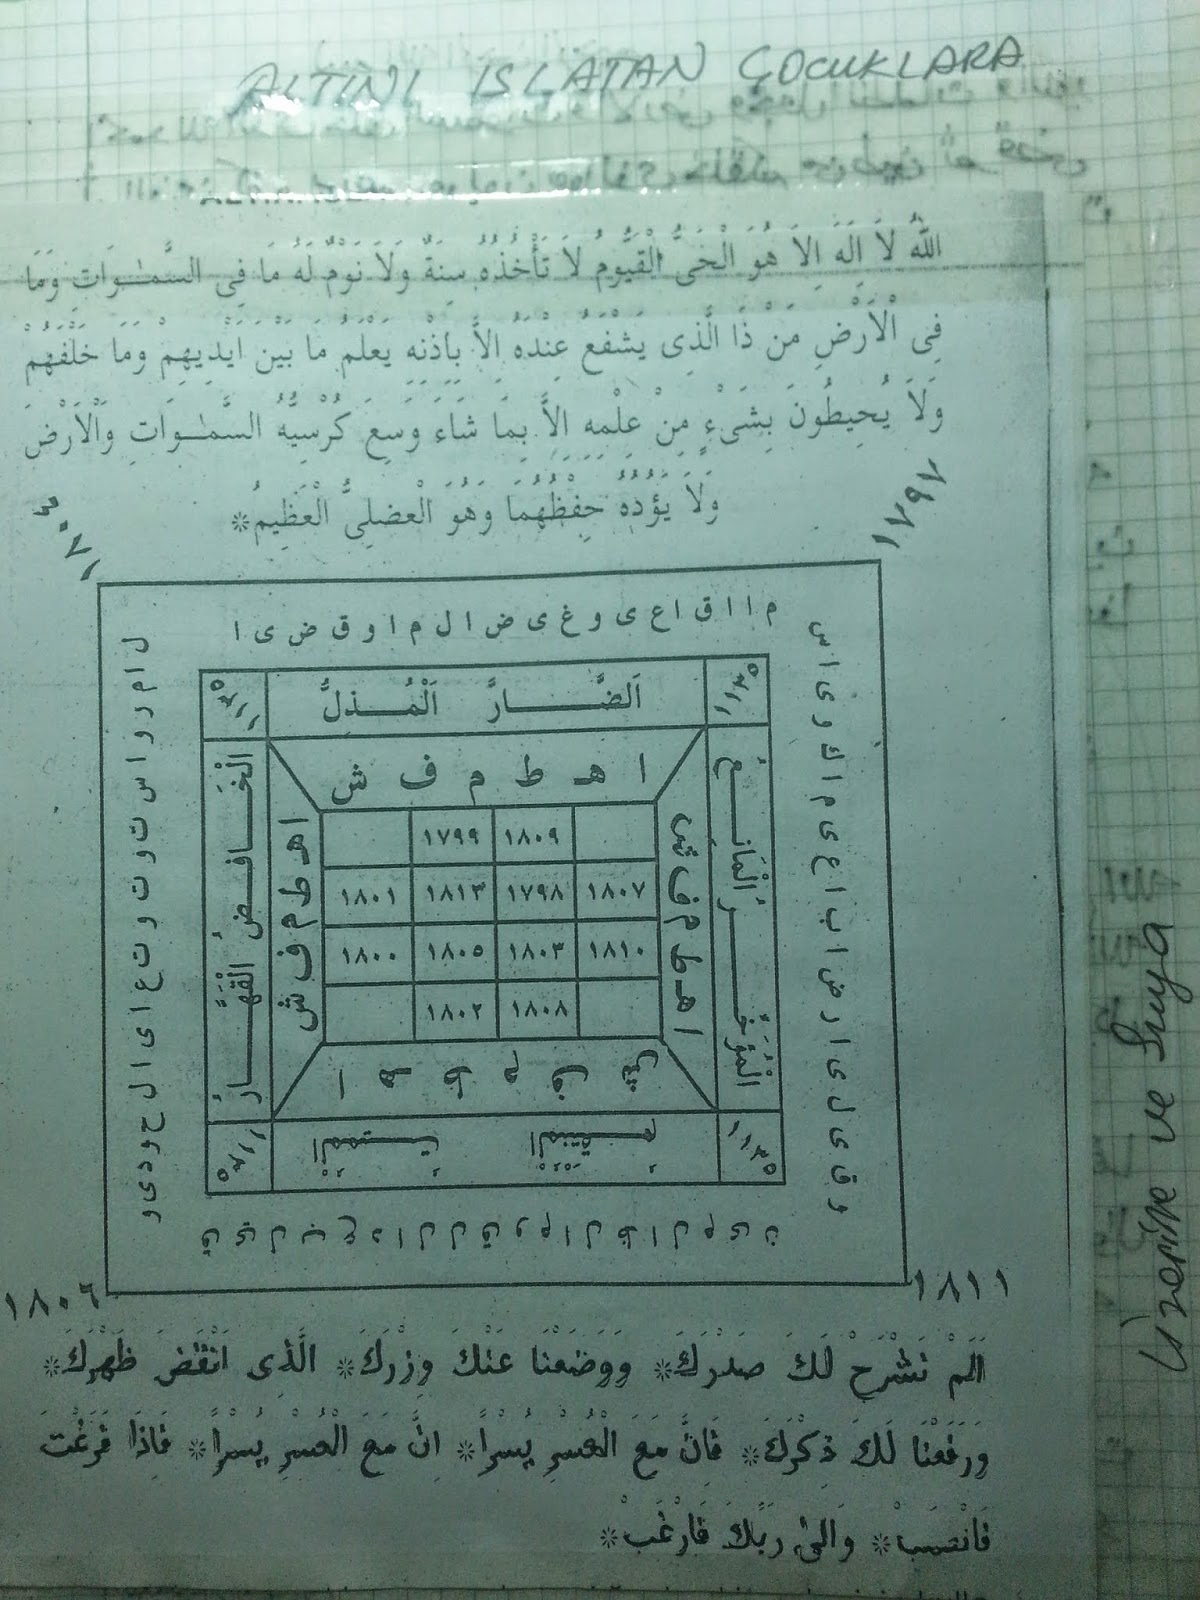 ALTINI ISLATAN ÇOCUKLARA
اَللّٰهُ لَا اِلٰهَ اِلَّا هُوَ الْحَىُّ الْقَيُّومُ لَا تَأْخُذُهُ سِنَةٌ وَلَا نَوْمٌ لَهُ مَا فِى السَّمٰوَاتِ وَمَا
فِى الْاَرْضِ مَنْ ذَا الَّذِى يَشْفَعُ عِنْدَهُ اِلَّا بِاِذْنِه يَعْلَمُ مَا بَيْنَ اَيْدِيهِمْ وَمَا خَلْفَهُمْ
وَلَا يُحِيطُونَ بِشَىْءٍ مِنْ عِلْمِهِ اِلَّا بِمَا شَاءَ وَسِعَ كُرْسِيُّهُ السَّمٰوَاتِ وَالْاَرْضَ
وَلَا يَؤُدُهُ حِفْظُهُمَا وَهُوَ الْعَضلِىُّ الْعَظِيمُ*
١٧٩٧
م ا ا ق ا ع ى و غ ى ض ا ل م ا و ق ض ى ا
١١٣٥
اَلضَّارُّ اَلْمُذِلُّ
١١٣٥
ا هـ ط م ف ش
١٨٠٩ ١٧٩٩
١٨٠٧ ١٧٩٨ ١٨١٣ ١٨٠١
١٨١٠ ١٨٠٣ ١٨٠٥ ١٨٠٠
١٨٠٨ ١٨٠٢
ا هـ ط م ف ش
ا هـ ط م ف ش
ا هـ ط م ف ش
اَلْمُؤَخِّرُ اَلْمَانِعُ
اَلْخَافِضُ اَلْقَهَّارُ
اَلْمُنْتَقِمُ اَلْمُمِيتُ
١١٣٥
١١٣٥
و ق ى ل ى ا ا ر ض ا ب ل ع ى م ا ك و ى ا س
ل ا م ر و ا س ت و ت ع ل ى ا ل ج و د ى و
ق ى ل ب ع د ا ل ل ق و م ا ل ظ ا ل م ى ن
١٨١١
١٨٠٦
اَلَمْ نَشْرَحْ لَكَ صَدْرَكَ* وَوَضَعْنَا عَنْكَ وِزْرَكَ* الَّذِى اَنْقَضَ ظَهْرَكَ*
وَرَفَعْنَا لَكَ ذِكْرَكَ* فَاِنَّ مَعَ الْعُسْرِ يُسْرًا* اِنَّ مَعَ الْعُسْرِ يُسْرًا* فَاِذَا فَرَغْتَ
فَانْصَبْ* وَاِلٰى رَبِّكَ فَارْغَبْ*
Üzerine ve Suya